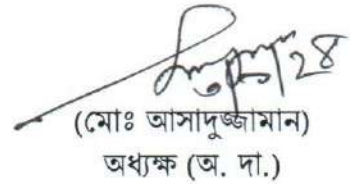 ২৪
(মোঃ আসাদুজ্জামান)
অধ্যক্ষ (অ. দা.)